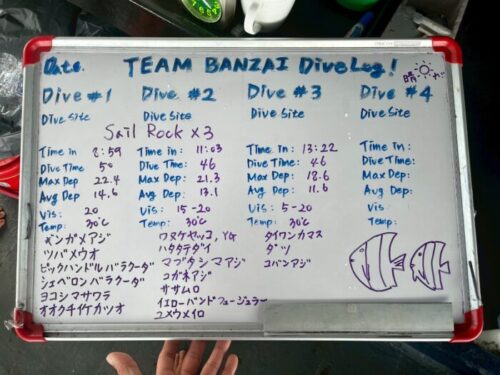 Date. TEAM BANZAI DiveLog! 晴れ
Dive #1 Dive #2 Dive #3 Dive #4
Dive Site Dive Site Dive Site Dive Site
Sail Rock x3
Time in 8:59 Time in: 11:03 Time in: 13:22 Time in:
Dive Time 50 Dive Time: 46 Dive Time: 46 Dive Time:
Max Dep 22.4 Max Dep: 21.3 Max Dep: 18.6 Max Dep:
Avg Dep 14.6 Avg Dep: 13.1 Avg Dep: 11.6 Avg Dep:
Vis: 20 Vis: 15-20 Vis: 5-20 Vis:
Temp: 30℃ Temp: 30℃ Temp: 30℃ Temp:
ギンガメアジ
ツバメウオ
ピックハンドルバラクーダ
シェベロンバラクーダ
ヨコシマサワラ
オオクチイケカツオ
ワヌケヤッコ, YG
ハタタテダイ
マブタシマアジ
コガネアジ
ササムロ
イエローバンドフュージュラー
ユメウメイロ
タイワンカマス
ダツ
コバンアジ